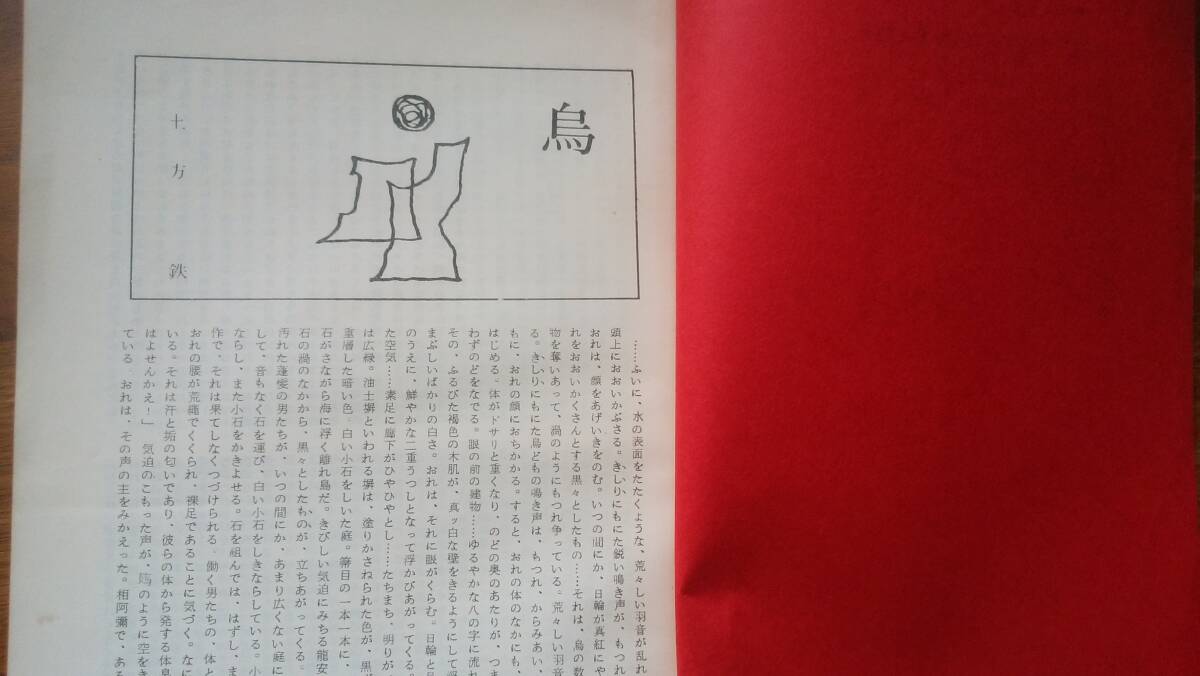 烏
土方 鉄
……ふいに、水の表面をたたくような、荒々しい羽音が乱れ
頭上におおいかぶさる。きしりにもにた鋭い鳴き声が、もつれ
おれは、顔をあげいきをのむ。いつの間にか、日輪が真紅にや
れをおおいかくさんとする黒々としたもの……それは、烏の数
物を奪いあって、渦のようにもつれ争っている。荒々しい羽音
る。きしりにもにた烏どもの鳴き声は、もつれ、からみあい、
もに、おれの顔におちかかる。すると、おれの体のなかにも、
はじめる。体がドサリと重くなり、のどの奥のあたりが、つま
わずのどをなでる。眼の前の建物……ゆるやかな八の字に流れ
その、ふるびた褐色の木肌が、真ッ白な壁をきるようにして
まぶしいばかりの白さ。おれは、それに眼がくらむ。日輪と
のうえに、鮮やかな二重うつしとなって浮かびあがってくる。
た空気……素足に廊下がひやひやとし……たちまち、明りが
は広縁。油土塀といわれる塀は、塗りかさねられた色が、黒
重層した暗い色。白い小石をしいた庭。箒目の一本一本に、
石がさながら海に浮く離れ島だ。きびしい気迫にみちる龍安
石の渦のなかから、黒々としたものが、立ちあがってくる。
汚れた蓬髪の男たちが、いつの間にか、あまり広くない庭に
して、音もなく石を運び、白い小石をしきならしている。小
ならし、また小石をかきよせる。石を組んでは、はずし、ま
作で、それは果てしなくつづけられる。働く男たちの、体と
おれの腰が荒縄でくくられ、裸足であることに気づく。なに
いる。それは汗と垢の匂いであり、彼らの体から発する体臭
はよせんかえ！」 気迫のこもった声が、鞭のように空をき
ている おれは、その声の主をみかえった。相阿彌で、ある